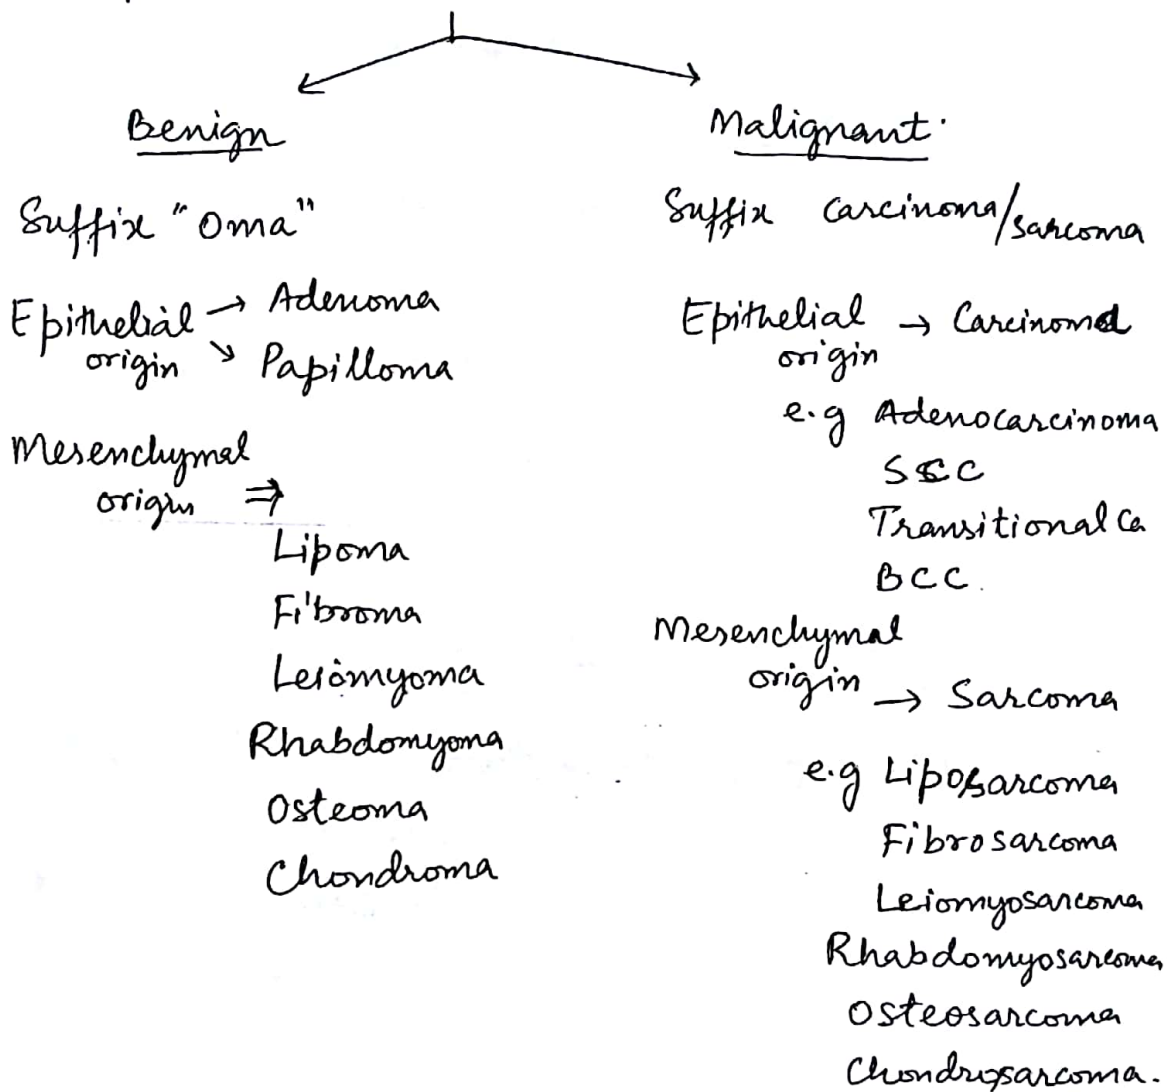 Benign
Suffix "Oma"
Epithelial → Adenoma
origin ↘ Papilloma
Mesenchymal
origin ⇒
Lipoma
Fibroma
Leiomyoma
Rhabdomyoma
Osteoma
Chondroma
Malignant.
Suffix carcinoma/sarcoma
Epithelial → Carcinoma
origin
e.g Adenocarcinoma
SCC
Transitional Ca
BCC.
Mesenchymal
origin → Sarcoma
e.g Liposarcoma
Fibrosarcoma
Leiomyosarcoma
Rhabdomyosarcoma
Osteosarcoma
Chondrosarcoma.